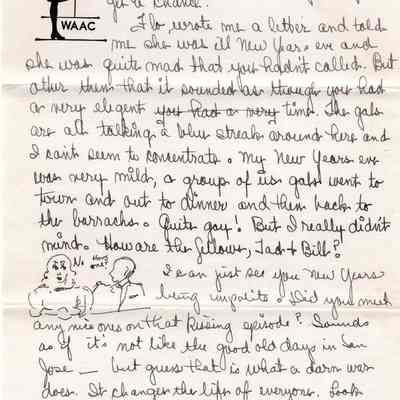 get a chance.
WAAC
Flo, wrote me a letter and told
me she was ill New Years eve and
she was quite mad that you hadn't called. But
other then that it sounded as though you had
a very elegent you had a very time. The gals
are all talking a blue streak around here and
I can't seem to concentrate. My New Years eve
was very mild, a group of us gals went to
town and out to dinner and then back to
the barracks. Quite gay! But I really didn't
mind. How are the fellows, Tad + Bill?
No
I can just see you New Years
being unpolite. Did you meet
any nice ones on that Rusing episode? Sounds
as if it's not like the good old days in San
Jose — but guess that is what a darn war
does. It changes the lifes of everyone. Look